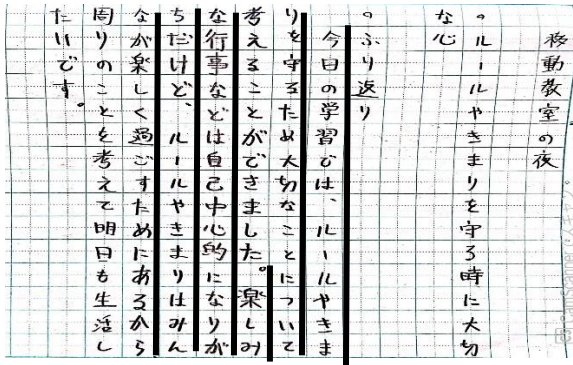 移動教室の夜
。ルールやきまりを守る時に大切
な心
。ふり返り
今日の学習では、ルールやきま
りを守るため大切なことについて
考えることができました。楽しみ
な行事などは自己中心的になりが
ちだけど、ルールやきまりはみん
なが楽しく過ごすためにあるから
周りのことを考えて明日も生活し
たいです。
CamScanner でスキャン